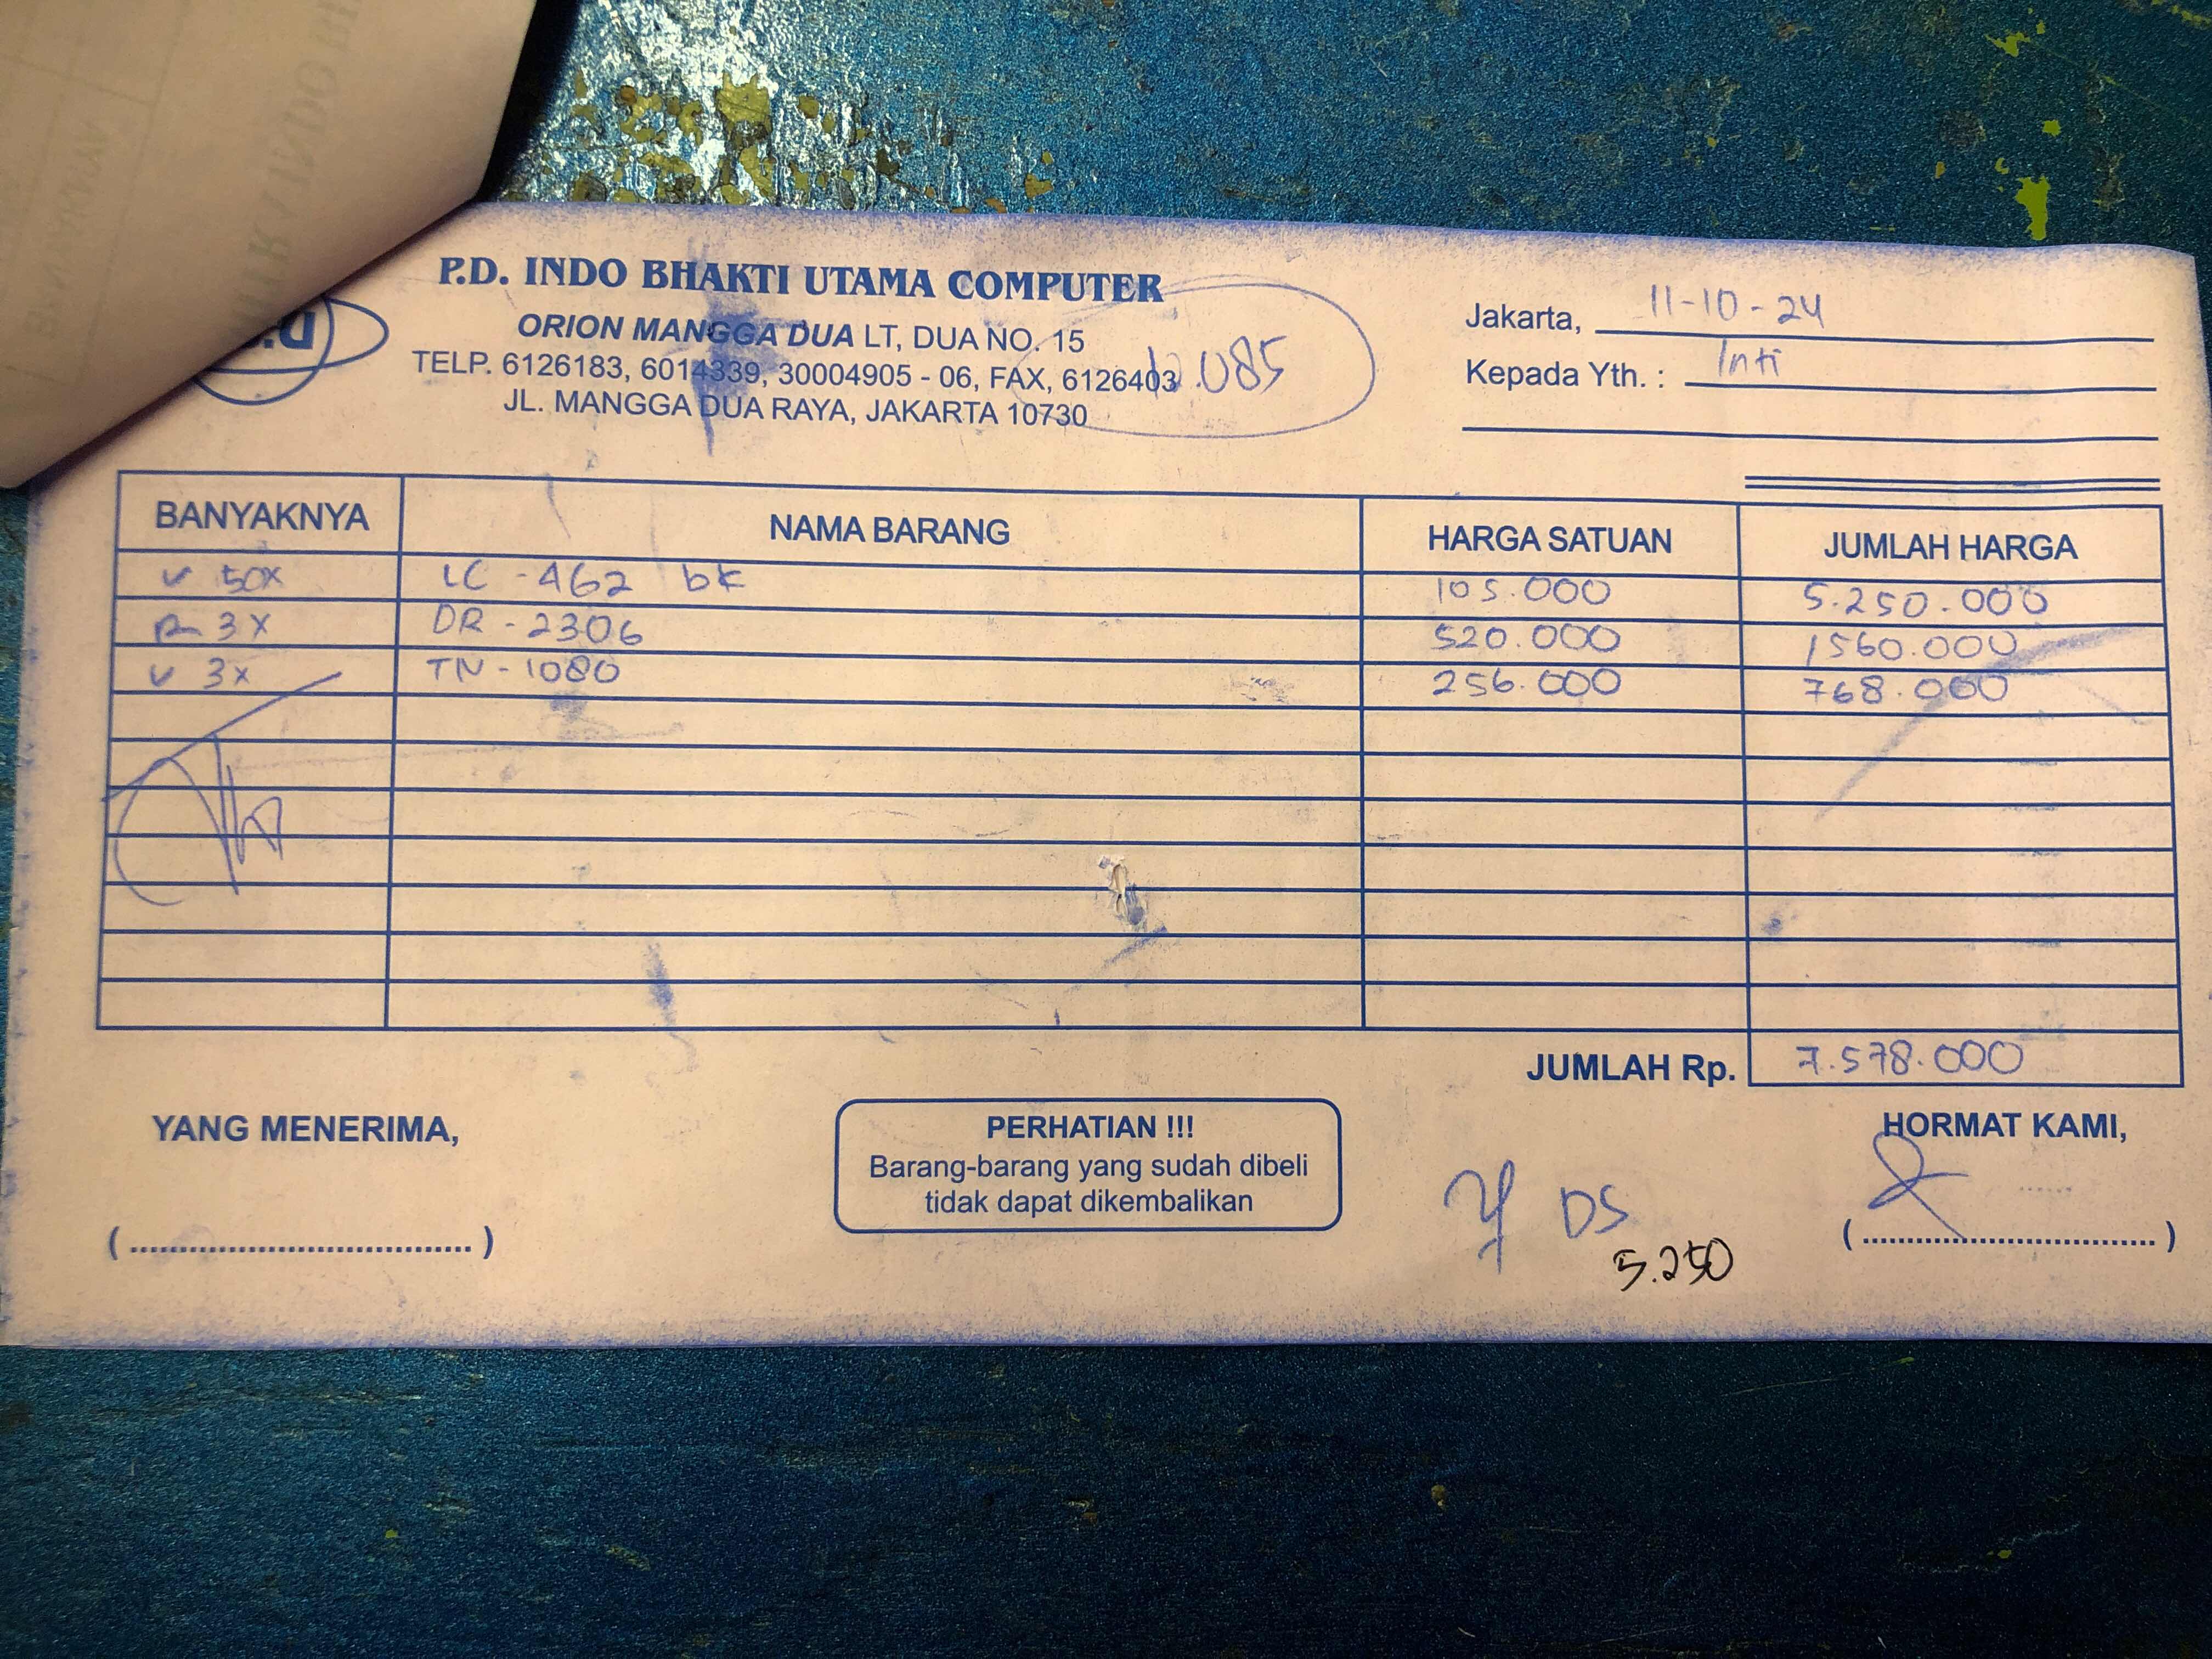 P.D. INDO BHAKTI UTAMA COMPUTER
ORION MANGGA DUA LT, DUA NO. 15
TELP. 6126183, 6014339, 30004905 - 06, FAX, 6126403
JL. MANGGA DUA RAYA, JAKARTA 10730
.085
Jakarta, 11-10-24
Kepada Yth. : Inti
BANYAKNYA NAMA BARANG HARGA SATUAN JUMLAH HARGA
50X LC-462 bk 105.000 5.250.000
3X DR-2306 520.000 1560.000
3X TN-1080 256.000 768.000
JUMLAH Rp. 7.578.000
YANG MENERIMA,
PERHATIAN !!!
Barang-barang yang sudah dibeli
tidak dapat dikembalikan
HORMAT KAMI,
DS
5.250
(....................................)
(....................................)
BANYAKNYA